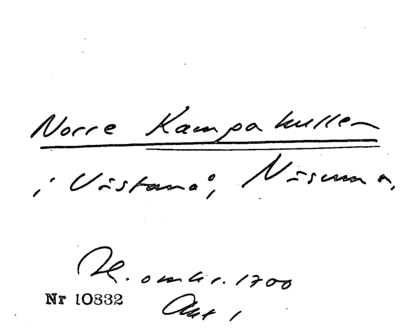 Norre Kampakullen
i Västanå, Näsum s.
H. omkr. 1700
Nr 10832
Akt 1